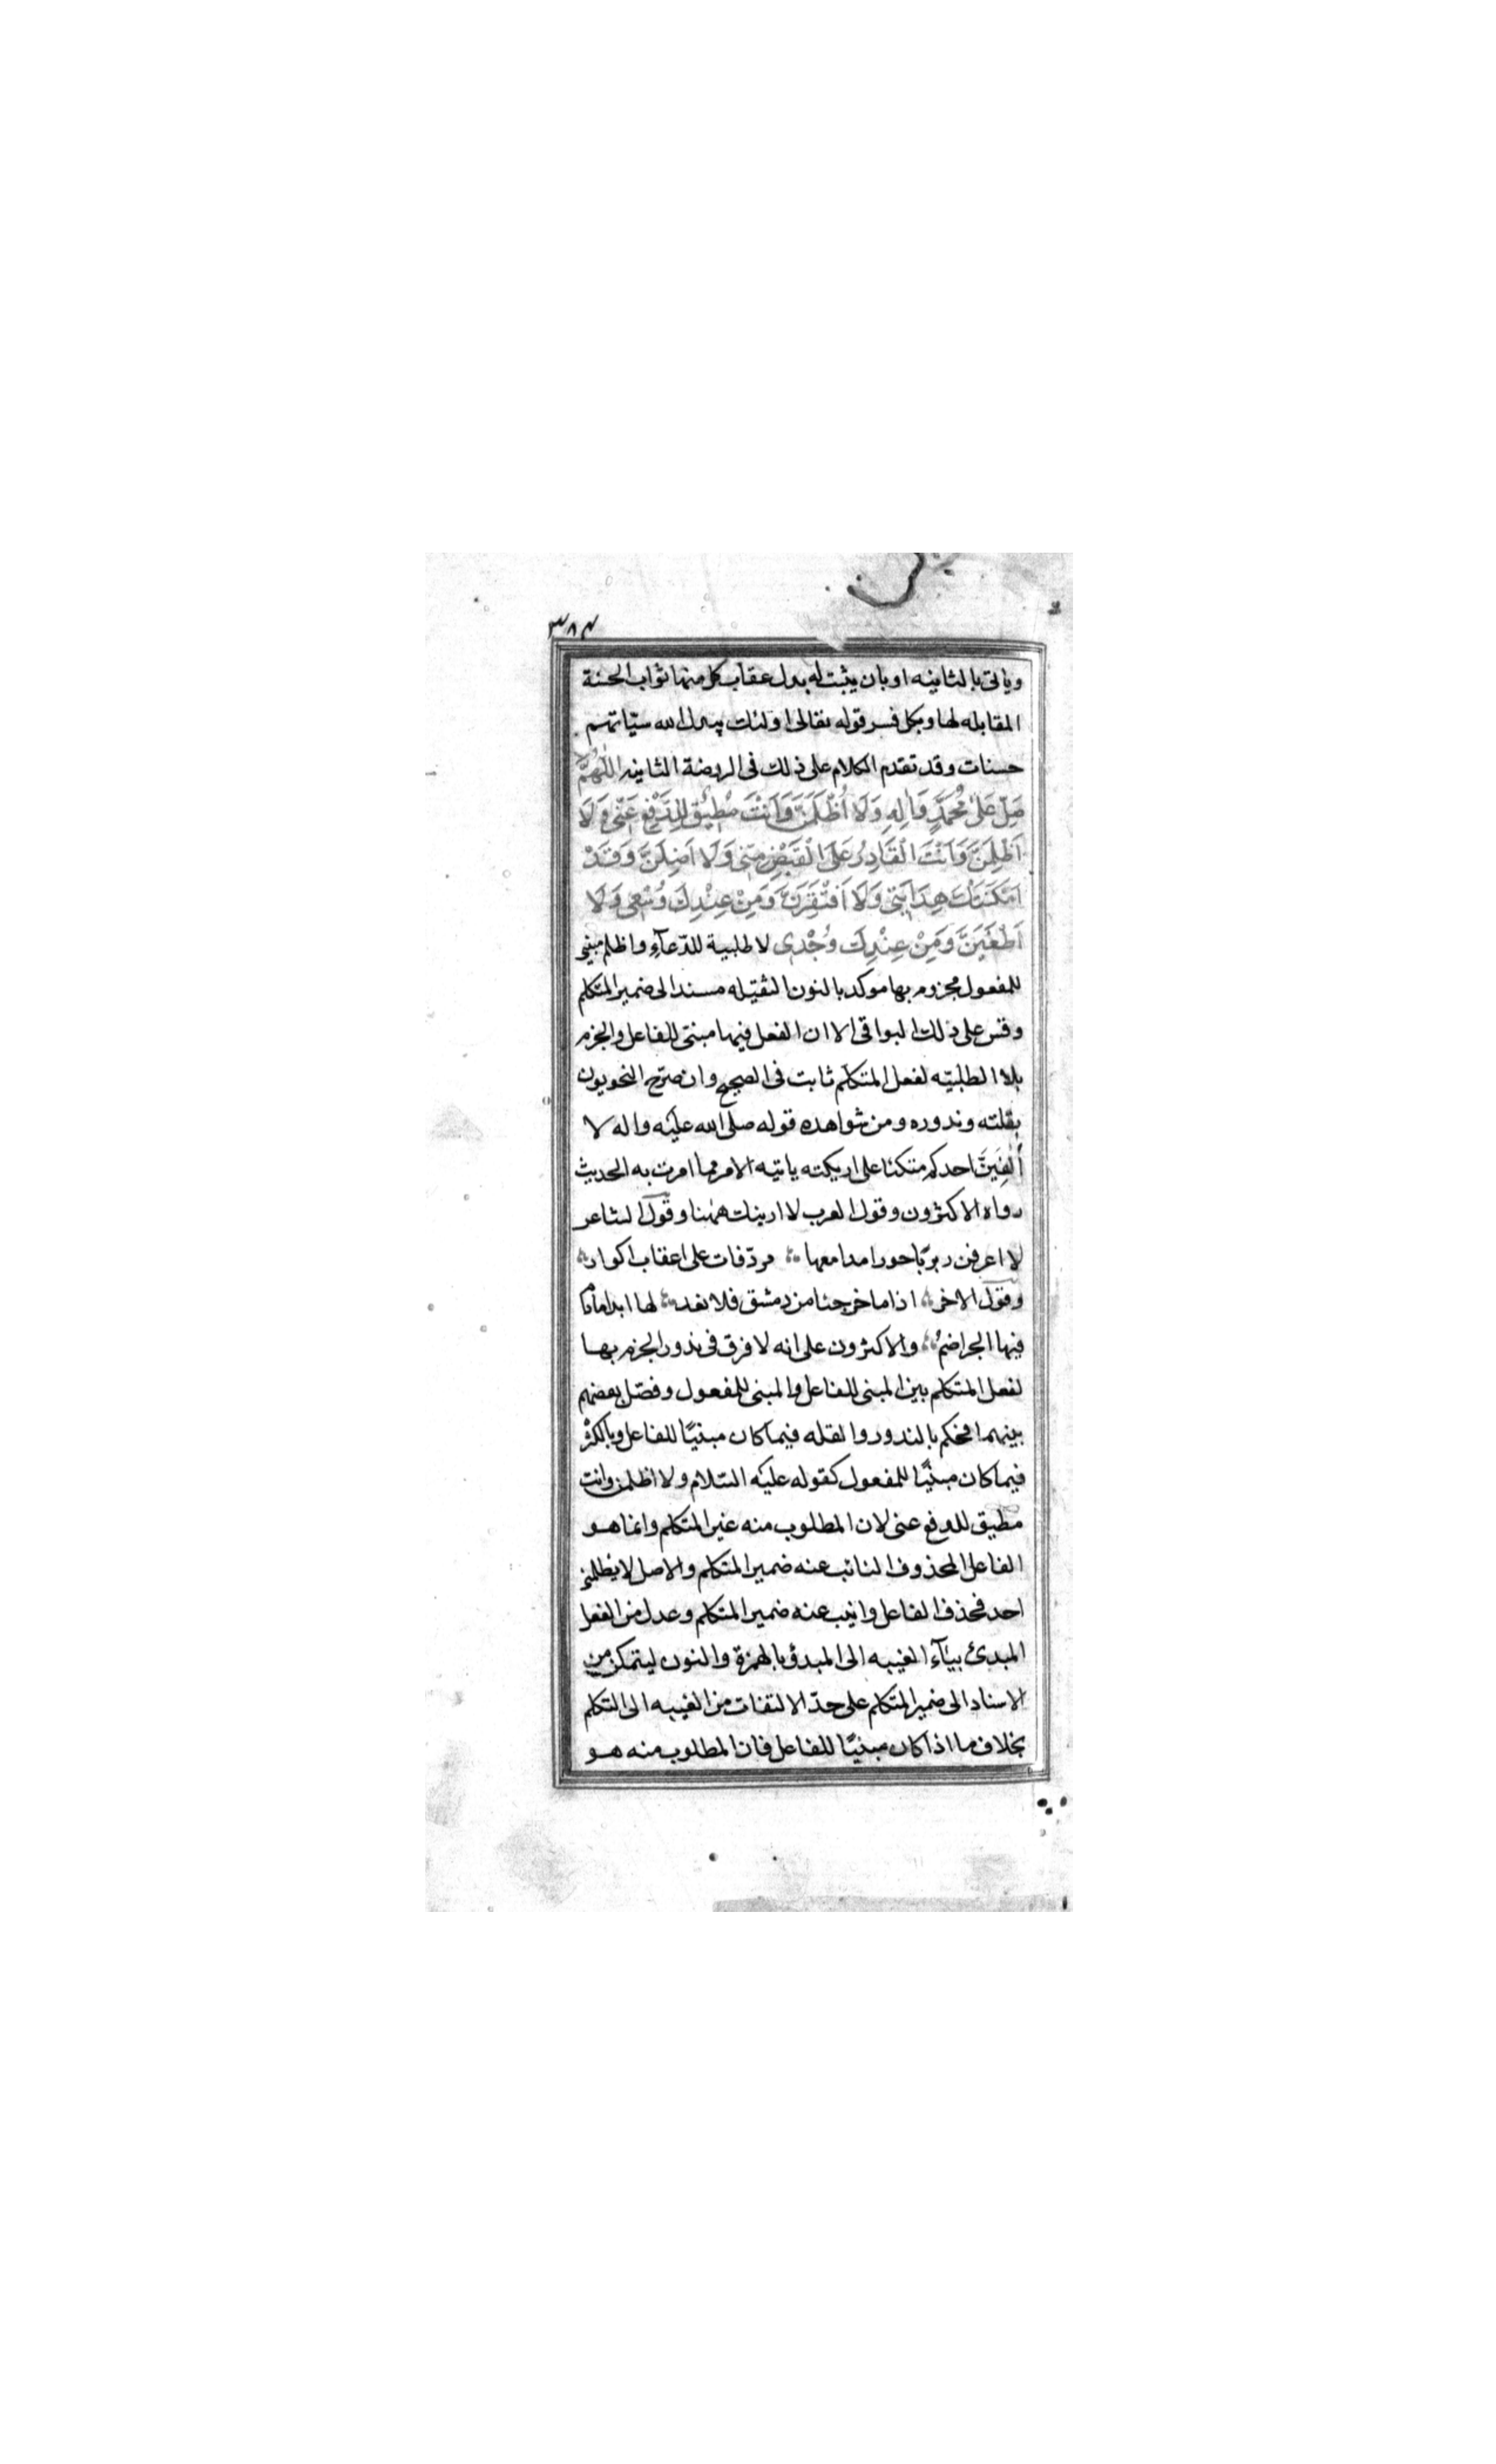 ٣٨٤
وياتى بالثانيه او بان يثبت له بدل عقاب كل منها ثواب الحسنة
المقابله لها وبكل فسر قوله تعالى اولئك يبدل الله سيّاتهم
حسنات وقد تقدم الكلام على ذلك فى الروضة الثانيه اللّهُمَّ
صَلِّ عَلىٰ مُحَمَّدٍ وَاٰلِهِ وَلَا اُظْلَمَنَّ وَاَنْتَ مُطِيْقٌ لِلدَّفْعِ عَنّى وَلَا
اَظْلِمَنَّ وَاَنْتَ الْقَادِرُ عَلَى الْقَبْضِ مِنّى وَلَا اَضِلَنَّ وَقَدْ
اَمْكَنَتْكَ هِدَايَتى وَلَا اَفْتَقِرَنَّ وَمِنْ عِنْدِكَ وُسْعى وَلَا
اَطْغَيَنَّ وَمِنْ عِنْدِكَ وُجْدى لا طلبية للدّعآءِ واظلم مبنى
للمفعول مجزوم بها موكد بالنون الثقيله مسند الى ضمير المتكلم
وقس على ذلك البواقى الا ان الفعل فيها مبنى للفاعل والجزم
بلا الطلبيّه لفعل المتكلم ثابت فى الصحيح وان صرّح النحويون
بقلته وندوره ومن شواهده قوله صلى الله عليه واله لا
أُلفِيَنَّ احدكم متكئا على اريكته ياتيه الامر مما امرت به الحديث
رواه الاكثرون وقول العرب لا ارينك ههنا وقول الشاعر
لا اعرفن ربربًا حورا مدامعها مردّفات على اعقاب اكوار
وقول الاخر اذا ما خرجنا من دمشق فلا نعد لها ابدا مادام
فيها الجراضمُ والاكثرون على انه لا فرق فى ندور الجزم بها
لفعل المتكلم بين المبنى للفاعل والمبنى للمفعول وفصّل بعضهم
بينهما فحكم بالندور والقله فيما كان مبنيًا للفاعل وبالكثرة
فيما كان مبنيًا للمفعول كقوله عليه السّلام ولا اظلمن وانت
مطيق للدفع عنى لان المطلوب منه غير المتكلم وانما هو
الفاعل المحذوف النائب عنه ضمير المتكلم والاصل لا يظلمنى
احد فحذف الفاعل وانيب عنه ضمير المتكلم وعدل من الفعل
المبدئ بيآء الغيبه الى المبدؤ بالهمزة والنون ليتمكن من
الاسناد الى ضمير المتكلم على حدّ الالتفات من الغيبه الى التكلم
بخلاف ما اذا كان مبنيًا للفاعل فان المطلوب منه هو